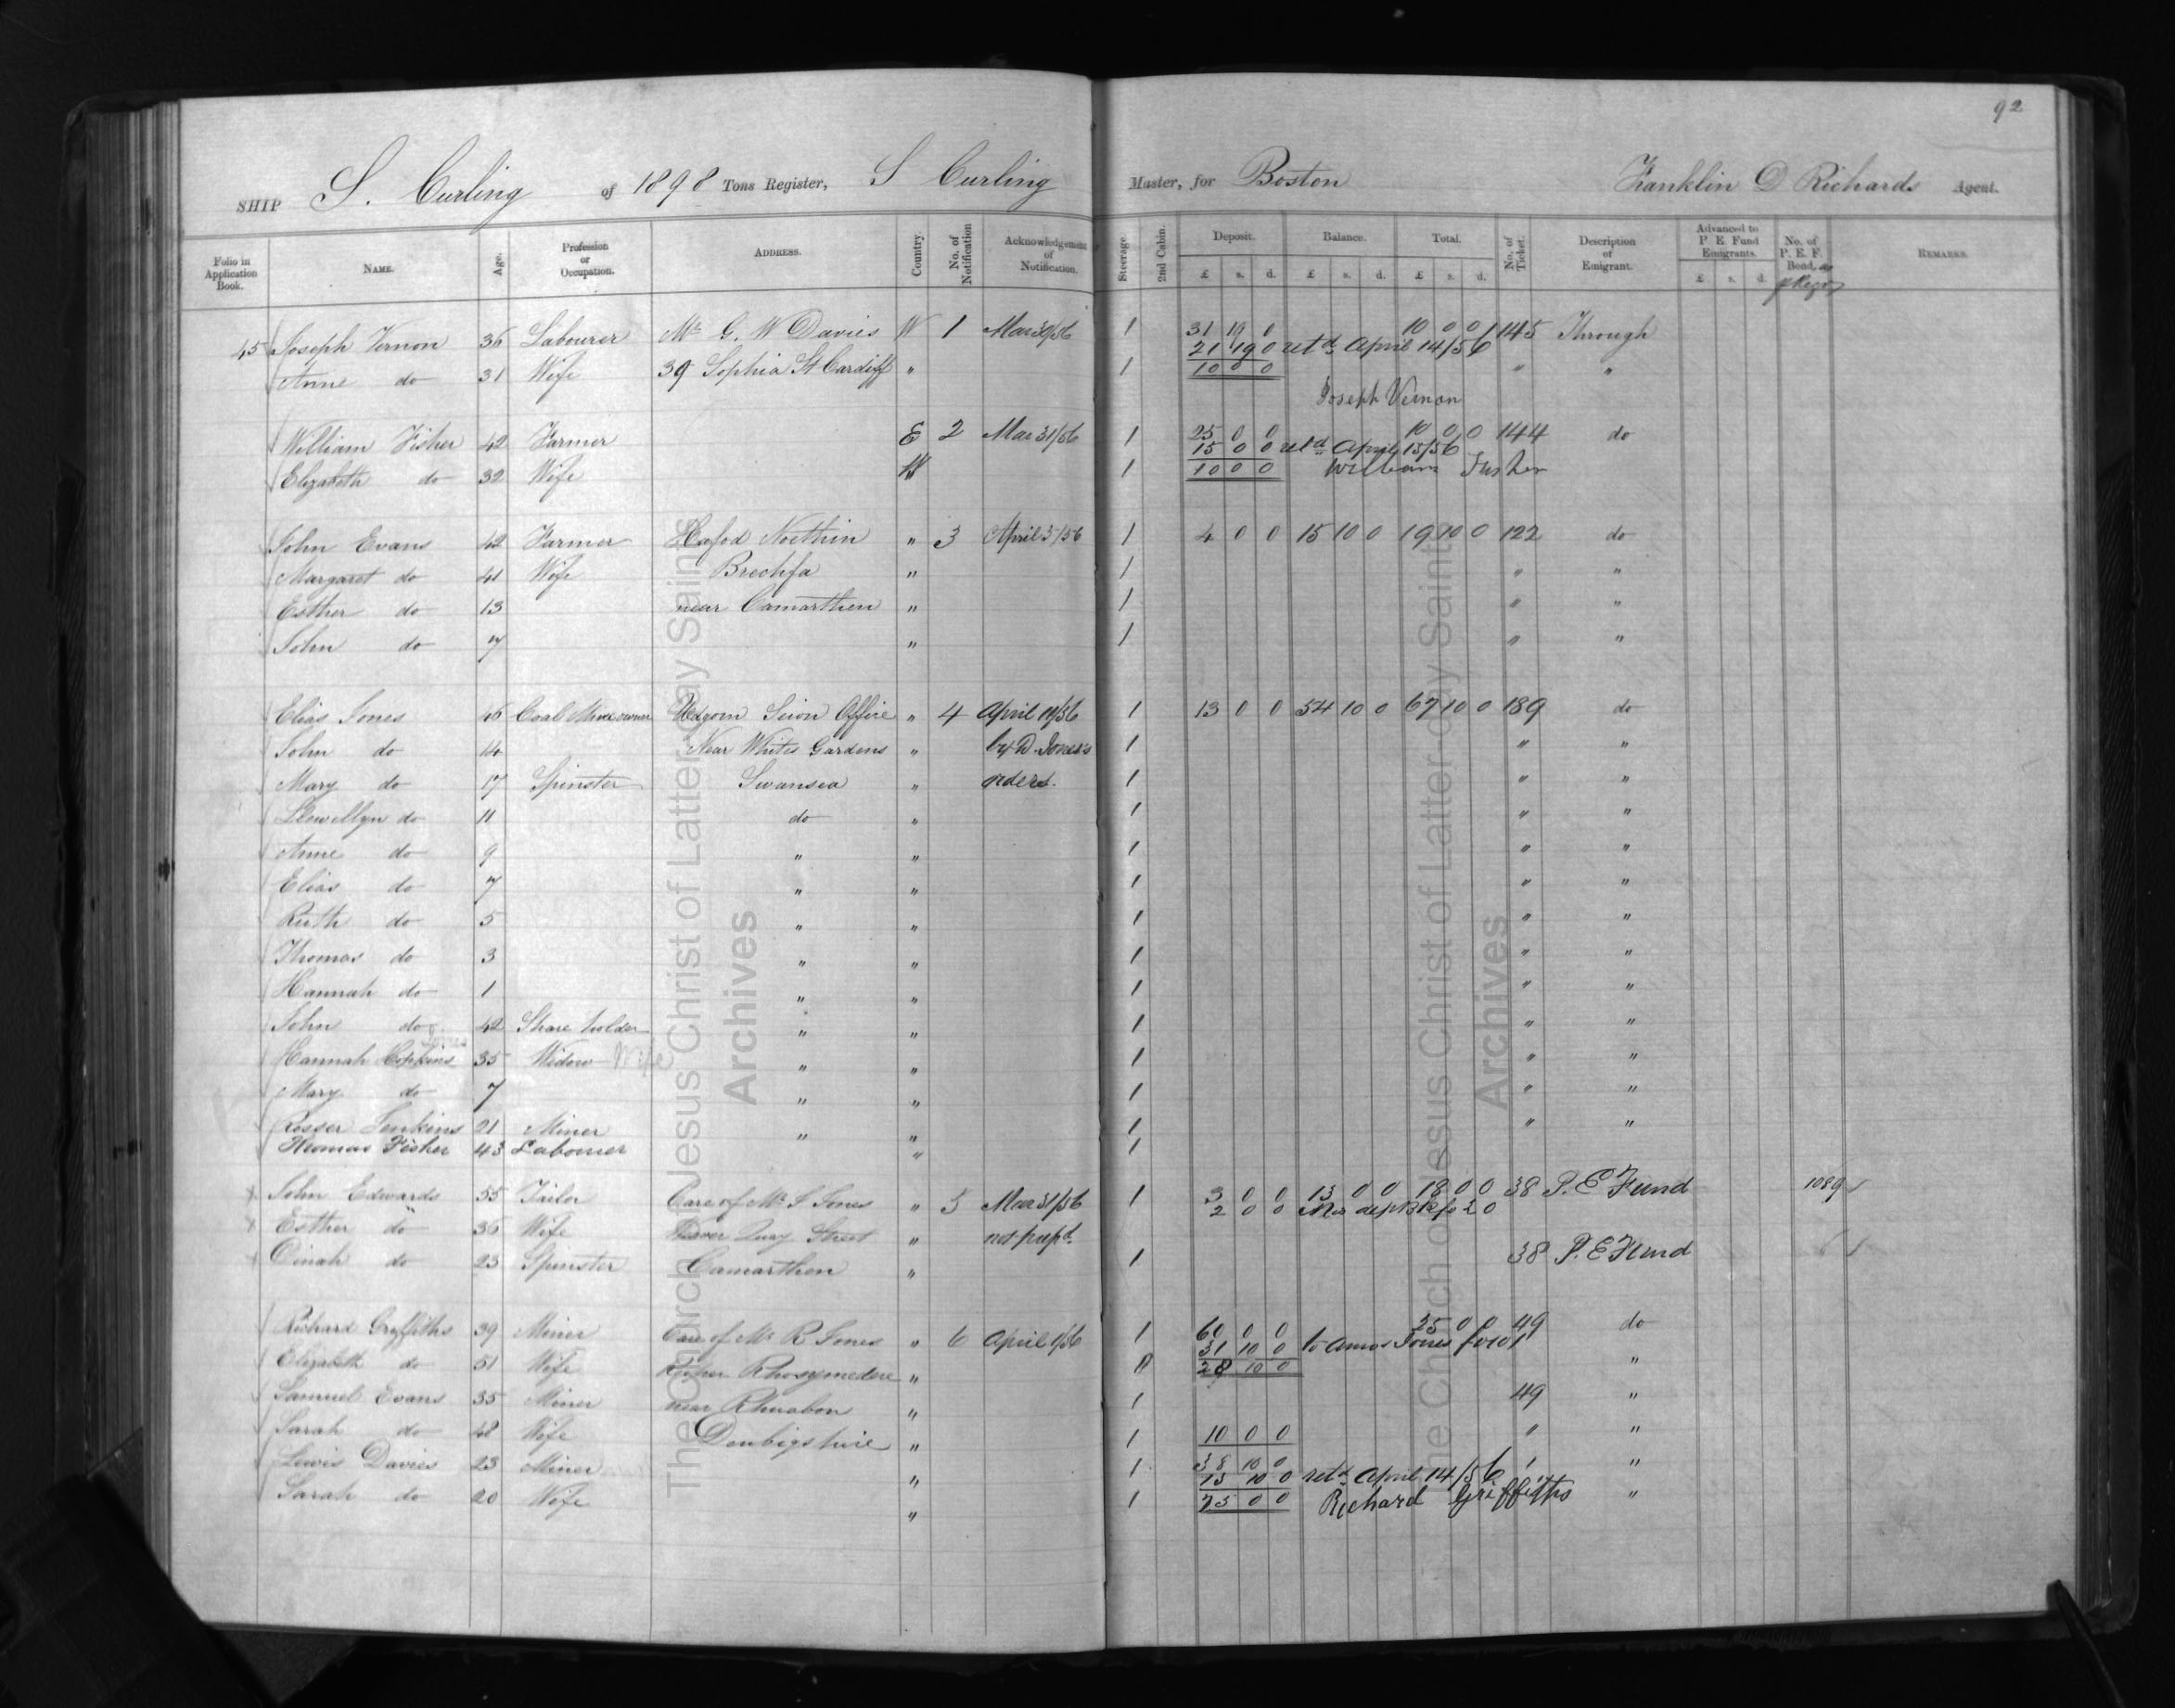 92
SHIP S. Curling of 1898 Tons Register, S Curling Master, for Boston Franklin D Richards Agent.
Folio in Application Book. NAME. Age. Profession or Occupation. ADDRESS. Country. No. of Notification Acknowledgement of Notification. Steerage. 2nd Cabin. Deposit. £ s. d. Balance. £ s. d. Total. £ s. d. No. of Ticket. Description of Emigrant. Advanced to P. E. Fund Emigrants. £ s. d. No. of P. E. F. Bond. REMARKS.
45 Joseph Vernon 36 Labourer Mr G. W Davies W 1 Mar 30/56 1 31 19 0 10 0 0 145 Through
21 19 0 retd April 14/56
Anne do 31 Wife 39 Sophia St Cardiff " 1 10 0 0 " "
Joseph Vernon
William Fisher 42 Farmer E 2 Mar 31/56 1 25 0 0 10 0 0 144 do
15 0 0 retd April 15/56
Elizabeth do 32 Wife W 1 10 0 0 William Fisher
John Evans 42 Farmer Hafod Noethin " 3 April 5/56 1 4 0 0 15 10 0 19 10 0 122 do
Margaret do 41 Wife Brechfa " 1 " "
Esther do 13 near Camarthen " 1 " "
John do 7 " 1 " "
Elias Jones 46 Coal Mine owner Udgorn Seion Office " 4 April 10/56 1 13 0 0 54 10 0 67 10 0 189 do
John do 14 Near Whites Gardens " by D. Jones's 1 " "
Mary do 17 Spinster Swansea " orders. 1 " "
Llewellyn do 11 do " 1 " "
Anne do 9 " " 1 " "
Elias do 7 " " 1 " "
Ruth do 5 " " 1 " "
Thomas do 3 " " 1 " "
Hannah do 1 " " 1 " "
John do 42 Share holder " " 1 " "
Jones
Hannah Hopkins 35 Widow Wife " " 1 " "
Mary do 7 " " 1 " "
Rosser Jenkins 21 Miner " " 1 " "
Thomas Fisher 43 Labourer " 1
John Edwards 55 Tailor Care of Mr S Jones " 5 Mar 31/56 1 3 0 0 13 0 0 18 0 0 38 P. E Fund 1089
2 0 0
Esther do 36 Wife Quay Street "
Dinah do 23 Spinster Camarthen " 1 38 P. E Fund
Richard Griffiths 39 Miner Care of Mr R Jones " 6 April 1/56 1 60 0 0 25 0 0 49 do
31 10 0 to Amos Jones
Elizabeth do 51 Wife Rhosymedre " 28 10 0 "
Samuel Evans 35 Miner near Rhuabon " 1 49 "
Sarah do 48 Wife Denbigshire " 1 10 0 0 " "
Lewis Davies 23 Miner " 1 38 10 0 "
13 10 0 retd April 14/56
Sarah do 20 Wife " 1 25 0 0 Richard Griffiths "
The Church of Jesus Christ of Latter-day Saints
Archives
The Church of Jesus Christ of Latter-day Saints
Archives